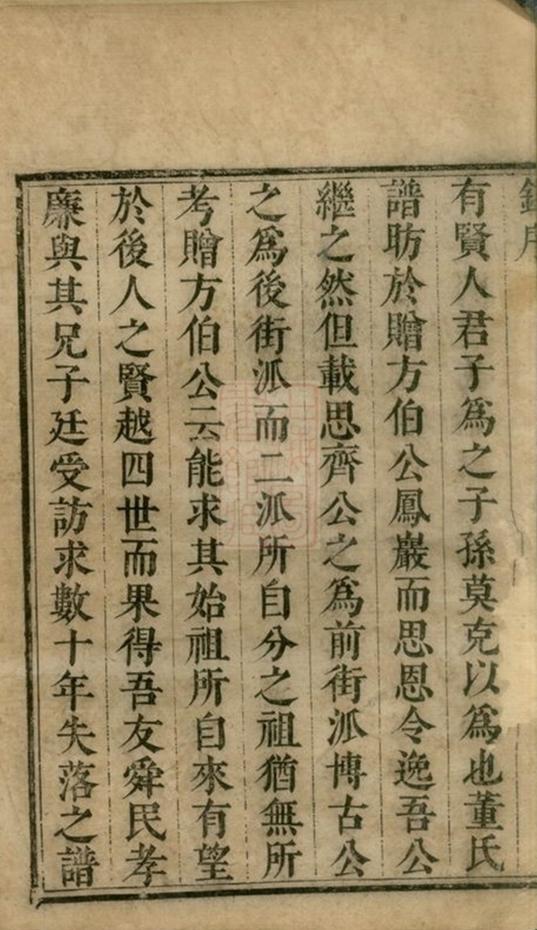 有賢人君子爲之子孫莫克以爲也董氏
譜昉於贈方伯公鳳巖而思恩令逸吾公
繼之然但載思齊公之爲前街派博古公
之爲後街派而二派所自分之祖猶無所
考贈方伯公云能求其始祖所自來有望
於後人之賢越四世而果得吾友舜民孝
廉與其兄子廷受訪求數十年失落之譜